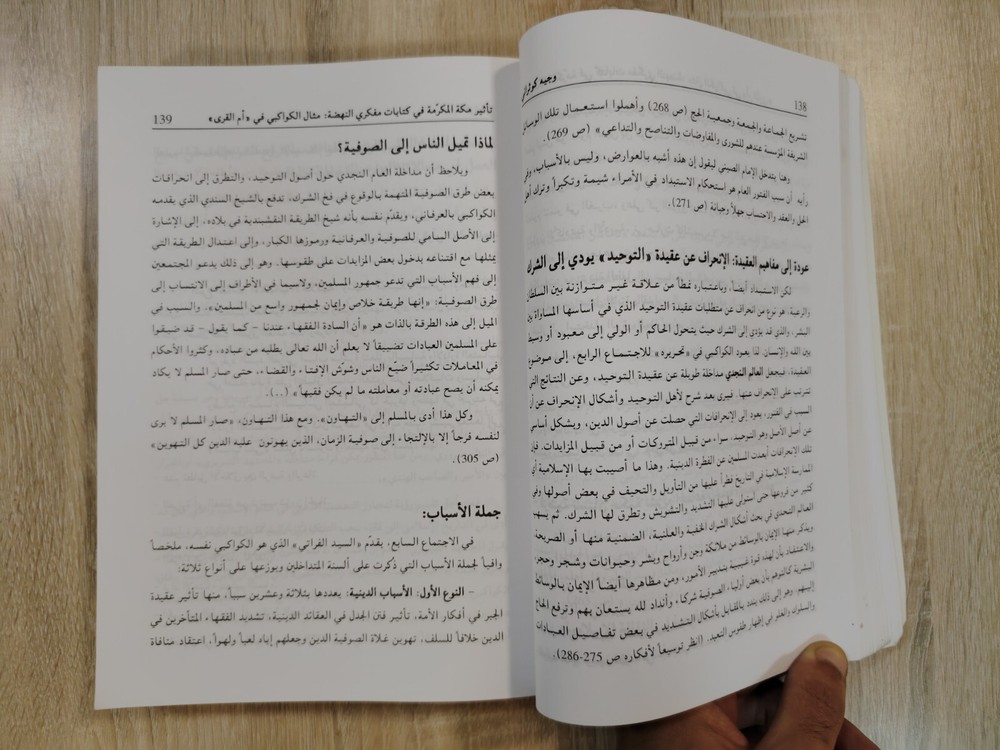 138
وجيه كوثراني
تشريع الجماعة والجمعة وجمعية الحج (ص 268) وأهملوا استعمال تلك الوسائل
الشريفة المؤسسة عندهم للشورى والمفاوضات والتناصح والتداعي» (ص 269).
وهنا يتدخل الإمام الصيني ليقول إن هذه أشبه بالعوارض، وليس بالأسباب، وفي
رأيه أن سبب الفتور العام هو استحكام الاستبداد في الأمراء شيمة وتكبراً وترك أهل
الحل والعقد والاحتساب جهلاً وجبانة (ص 271).
عودة إلى مفاهيم العقيدة: الإنحراف عن عقيدة «التوحيد» يودي إلى الشرك
لكن الاستبداد أيضاً، وباعتباره نمطاً من علاقة غير متوازنة بين السلطان
والرعية، هو نوع من انحراف عن متطلبات عقيدة التوحيد الذي في أساسها المساواة بين
البشر، والذي قد يؤدي إلى الشرك حيث يتحول الحاكم أو الولي إلى معبود أو وسيط
بين الله والإنسان. لذا يعود الكواكبي في «تحريره» للاجتماع الرابع، إلى موضوع
العقيدة، فيجعل العالم النجدي مداخلة طويلة عن عقيدة التوحيد، وعن النتائج التي
تترتب على الإنحراف عنها. فيرى بعد شرح لأهل التوحيد وأشكال الإنحراف عن أن
السبب في الفتور، يعود إلى الإنحرافات التي حصلت عن أصول الدين، وبشكل أساسي
عن أصل الأصل وهو التوحيد، سواء من قبيل المتروكات أو من قبيل المزايدات. فإن
تلك الإنحرافات أبعدت المسلمين عن الفطرة الدينية. وهذا ما أصيبت بها الإسلامية أي
الممارسة الإسلامية في التاريخ فطرأ عليها من التأويل والتحيف في بعض أصولها وفي
كثير من فروعها حتى استولى عليها التشديد والتشويش وتطرق لها الشرك. ثم يسهب
العالم النجدي في بحث أشكال الشرك الخفية والعلنية، الضمنية منها أو الصريحة.
ويذكر منها الإيمان بالوسائط من ملائكة وجن وأرواح وبشر وحيوانات وشجر وحجر،
والاعتقاد بأن لهذه قوة غيبية بتدبير الأمور، ومن مظاهرها أيضاً الإيمان بالوسائط
البشرية كالتوهم بأن بعض أولياء الصوفية شركاء وأنداد لله يستعان بهم وترفع الحاج
إليهم. وهو إلى ذلك يندد بالمقابل بأشكال التشديد في بعض تفاصيل العبادات
والسلوك والغلو في إظهار طقوس التعبد. (انظر توسيعاً لأفكاره ص 275-286).
تأثير مكة المكرّمة في كتابات مفكري النهضة: مثال الكواكبي في «أم القرى»
139
لماذا تميل الناس إلى الصوفية؟
ويلاحظ أن مداخلة العام النجدي حول أصول التوحيد، والتطرق إلى انحرافات
بعض طرق الصوفية المتهمة بالوقوع في فخ الشرك، تدفع بالشيخ السندي الذي يقدمه
الكواكبي بالعرفاني، ويقدّم نفسه بأنه شيخ الطريقة النقشبندية في بلاده، إلى الإشارة
إلى الأصل السامي للصوفية والعرفانية ورموزها الكبار، وإلى اعتدال الطريقة التي
يمثلها مع اقتناعه بدخول بعض المزايدات على طقوسها. وهو إلى ذلك يدعو المجتمعين
إلى فهم الأسباب التي تدعو جمهور المسلمين، ولاسيما في الأطراف إلى الانتساب إلى
طرق الصوفية: «إنها طريقة خلاص وإيمان لجمهور واسع من المسلمين». والسبب في
الميل إلى هذه الطرقة بالذات هو «أن السادة الفقهاء عندنا - كما يقول - قد ضيقوا
على المسلمين العبادات تضييقاً لا يعلم أن الله تعالى يطلبه من عباده، وكثروا الأحكام
في المعاملات تكثيراً ضيّع الناس وشوّش الإفتاء والقضاء، حتى صار المسلم لا يكاد
يمكنه أن يصح عبادته أو معاملته ما لم يكن فقيهاً» (..).
وكل هذا أدى بالمسلم إلى «التهاون». ومع هذا التهاون، «صار المسلم لا يرى
لنفسه فرجاً إلا بالإلتجاء إلى صوفية الزمان، الذين يهونون عليه الدين كل التهوين»
(ص 305).
جملة الأسباب:
في الاجتماع السابع، يقدّم «السيد الفراتي» الذي هو الكواكبي نفسه، ملخصاً
وافياً لجملة الأسباب التي ذكرت على ألسنة المتداخلين ويوزعها على أنواع ثلاثة:
- النوع الأول: الأسباب الدينية: يعددها بثلاثة وعشرين سبباً، منها تأثير عقيدة
الجبر في أفكار الأمة، تأثير فتن الجدل في العقائد الدينية، تشديد الفقهاء المتأخرين في
الدين خلافاً للسلف، تهوين غلاة الصوفية الدين وجعلهم إياه لعباً ولهواً. اعتقاد منافاة